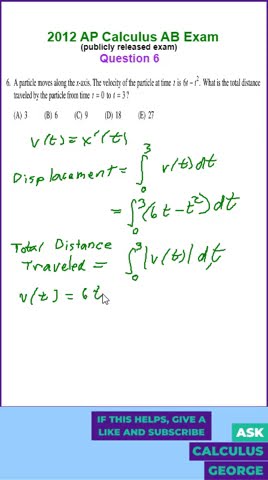 2012 AP Calculus AB Exam
(publicly released exam)
Question 6
6. A particle moves along the x-axis. The velocity of the particle at time t is 6t − t². What is the total distance
traveled by the particle from time t = 0 to t = 3 ?
(A) 3 (B) 6 (C) 9 (D) 18 (E) 27
v(t) = x'(t)
Displacement = ∫₀³ v(t) dt
= ∫₀³ (6t − t²) dt
Total Distance
Traveled = ∫₀³ |v(t)| dt,
v(t) = 6t
IF THIS HELPS, GIVE A
LIKE AND SUBSCRIBE
ASK
CALCULUS
GEORGE